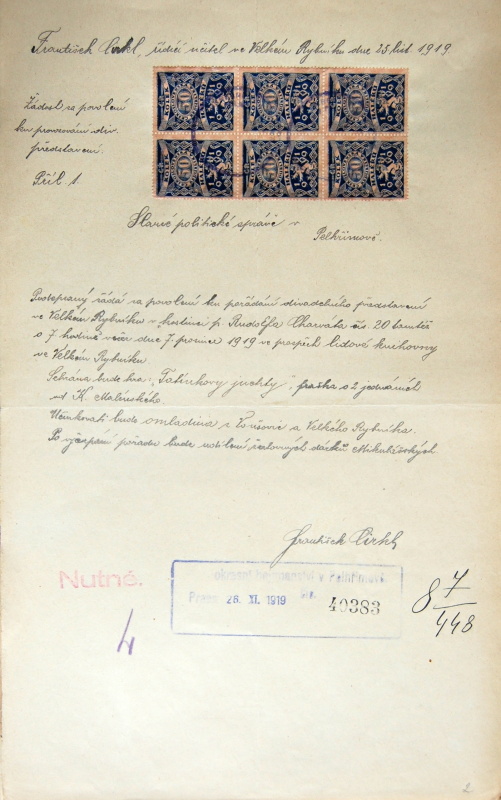 František Cirkl, řídící učitel ve Velkém Rybníku dne 25 list. 1919.
Žádost za povolení
ku provozování div.
představení.
Příl. 1.
50 50 50
50 50 50
Slavné politické správě v
Pelhřimově.
Podepsaný žádá za povolení ku pořádání divadelního představení
ve Velkém Rybníku v hostinci p. Rudolfa Charváta čís. 20 tamtéž
o 7 hodině večer dne 7. prosince 1919 ve prospěch lidové knihovny
ve Velkém Rybníku.
Sehrána bude hra: "Tatínkovy juchty", fraška o 2 jednáních
od K. Malínského.
Účinkovati bude omladina z a Velkého Rybníka.
Po vyčerpání pořadu bude udílení žertovných dárků Mikulášských.
František Cirkl
Nutné.
okresní hejtmanství v Pelhřimově
Praes. 26. XI. 1919 čís. 40383
8 7/448
4
2